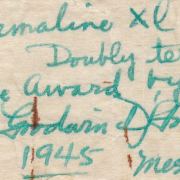 rmaline Xl
Doubly te
e Award by
Goodwin
1945 Mes